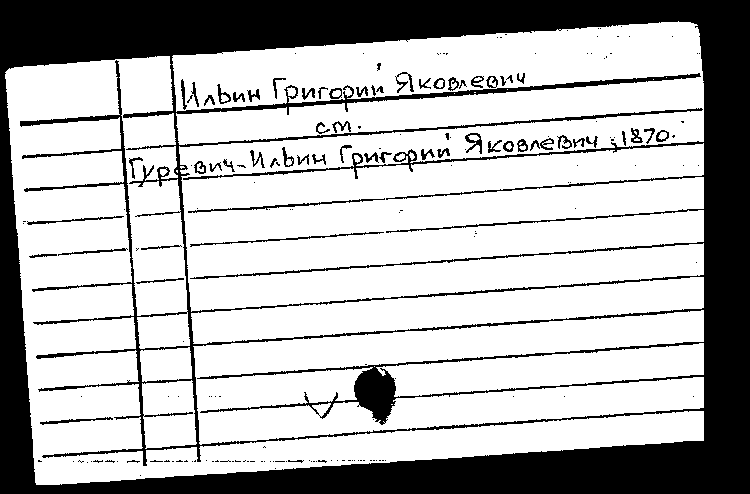 Ильин Григорий Яковлевич
см.
Гуревич-Ильин Григорий Яковлевич, 1870.